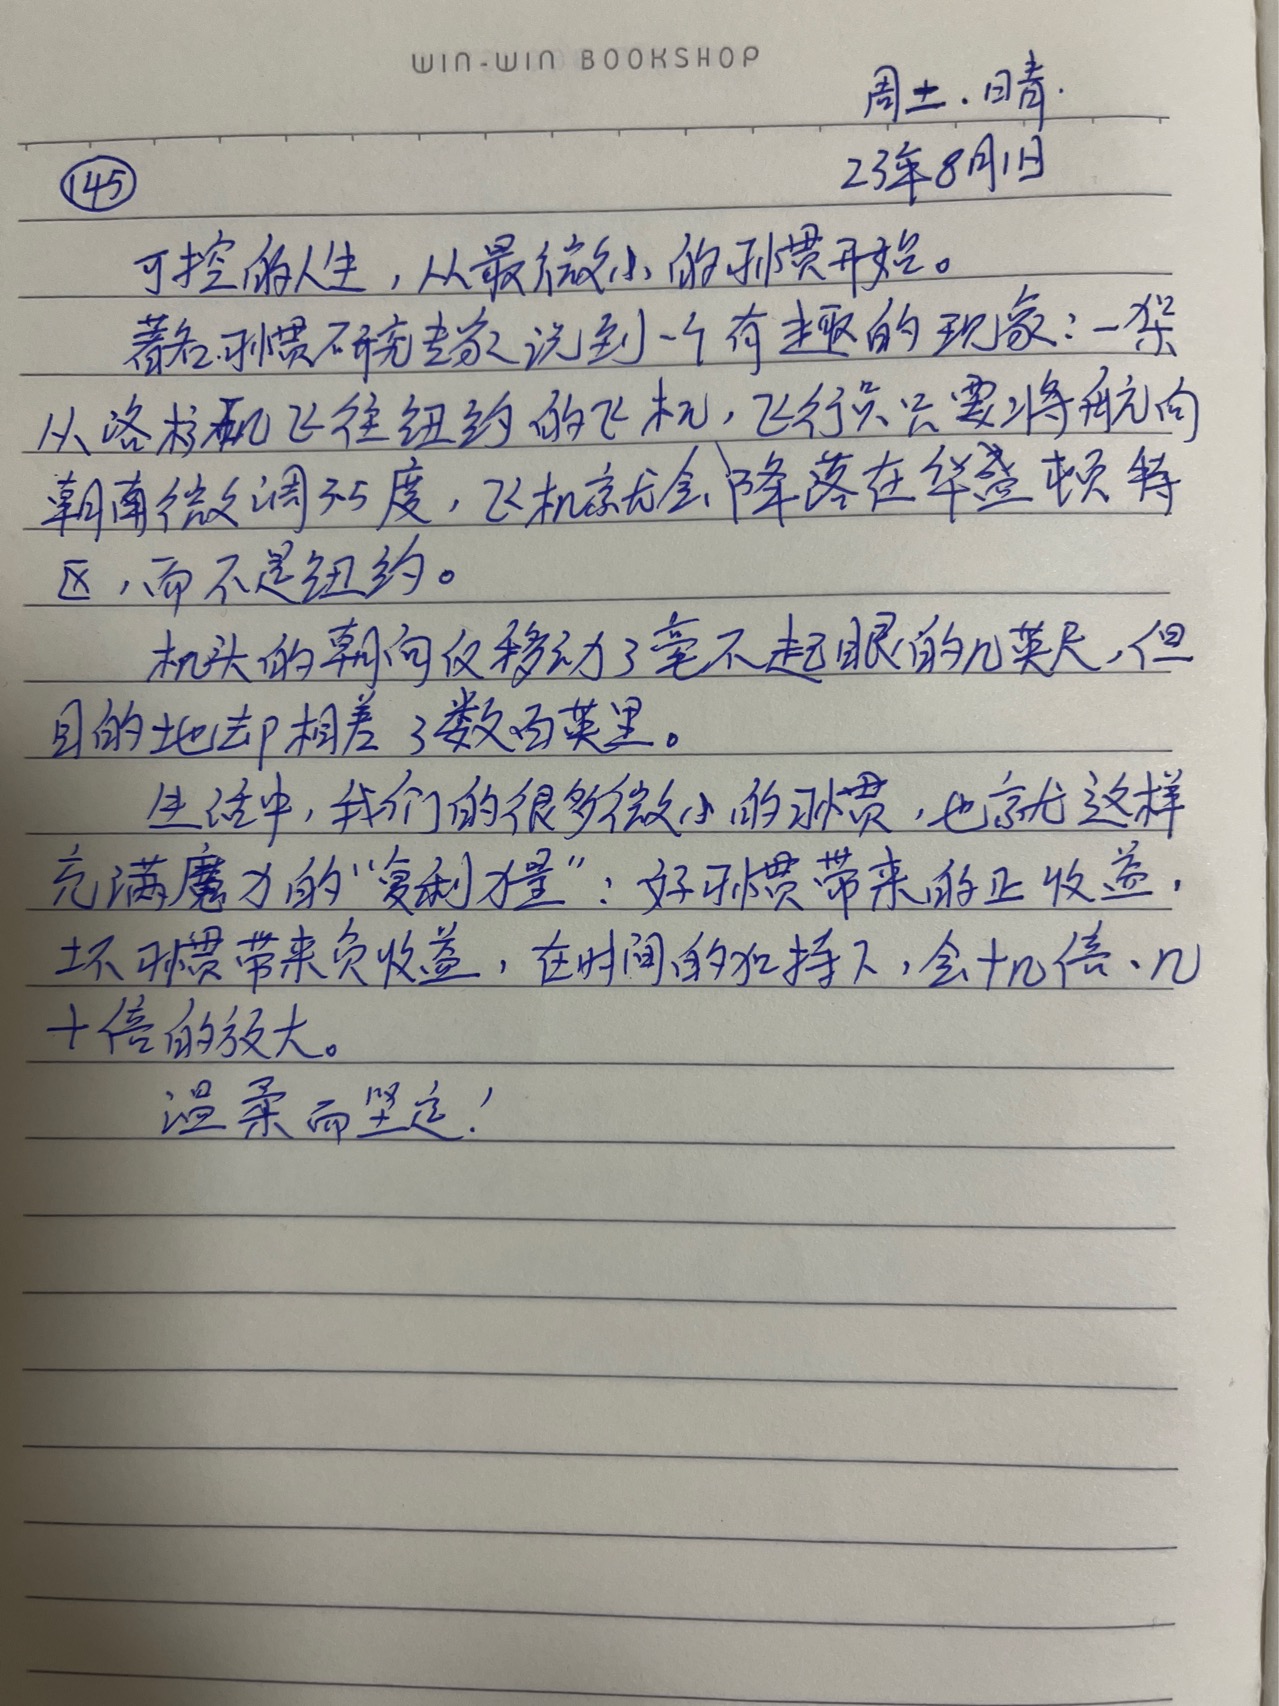 WIN-WIN BOOKSHOP
周土.晴.
145
23年8月1日
可控的人生，从最微小的习惯开始。
著名习惯研究专家说到一个有趣的现象：一架
从洛杉矶飞往纽约的飞机，飞行员只要将航向
朝南微调3.5度，飞机就会降落在华盛顿特
区，而不是纽约。
机头的朝向仅移动了毫不起眼的几英尺，但
目的地却相差了数百英里。
生活中，我们的很多微小的习惯，也就这样
充满魔力的“复利力量”：好习惯带来的正收益，
坏习惯带来负收益，在时间的加持下，会十几倍、几
十倍的放大。
温柔而坚定！